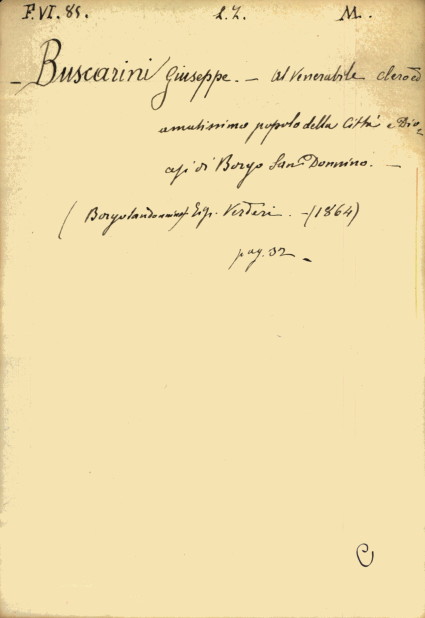 F. VI. 85. L. I. M.
– Buscarini Giuseppe. – Al Venerabile clero ed
amatissimo popolo della Città e Dio-
cesi di Borgo San Donnino. –
( Borgosandonnino Tip. Verderi. – (1864)
pag. 32 –
C